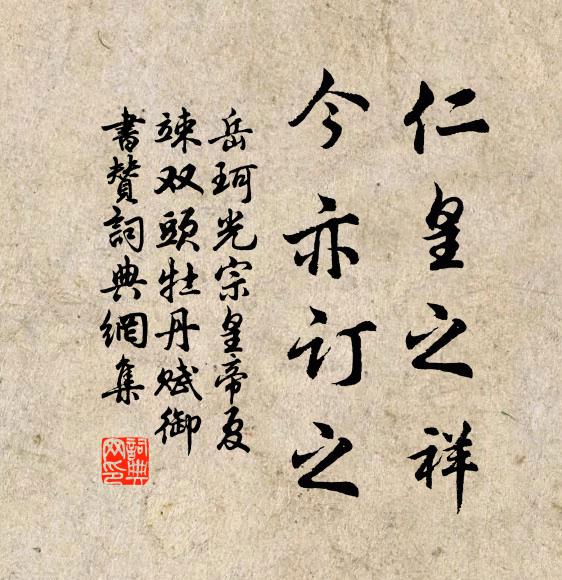 仁皇之祥
今亦订之
岳珂光宗皇帝夏
竦双頭牡丹赋御
書贊詞典網集
詞典网印